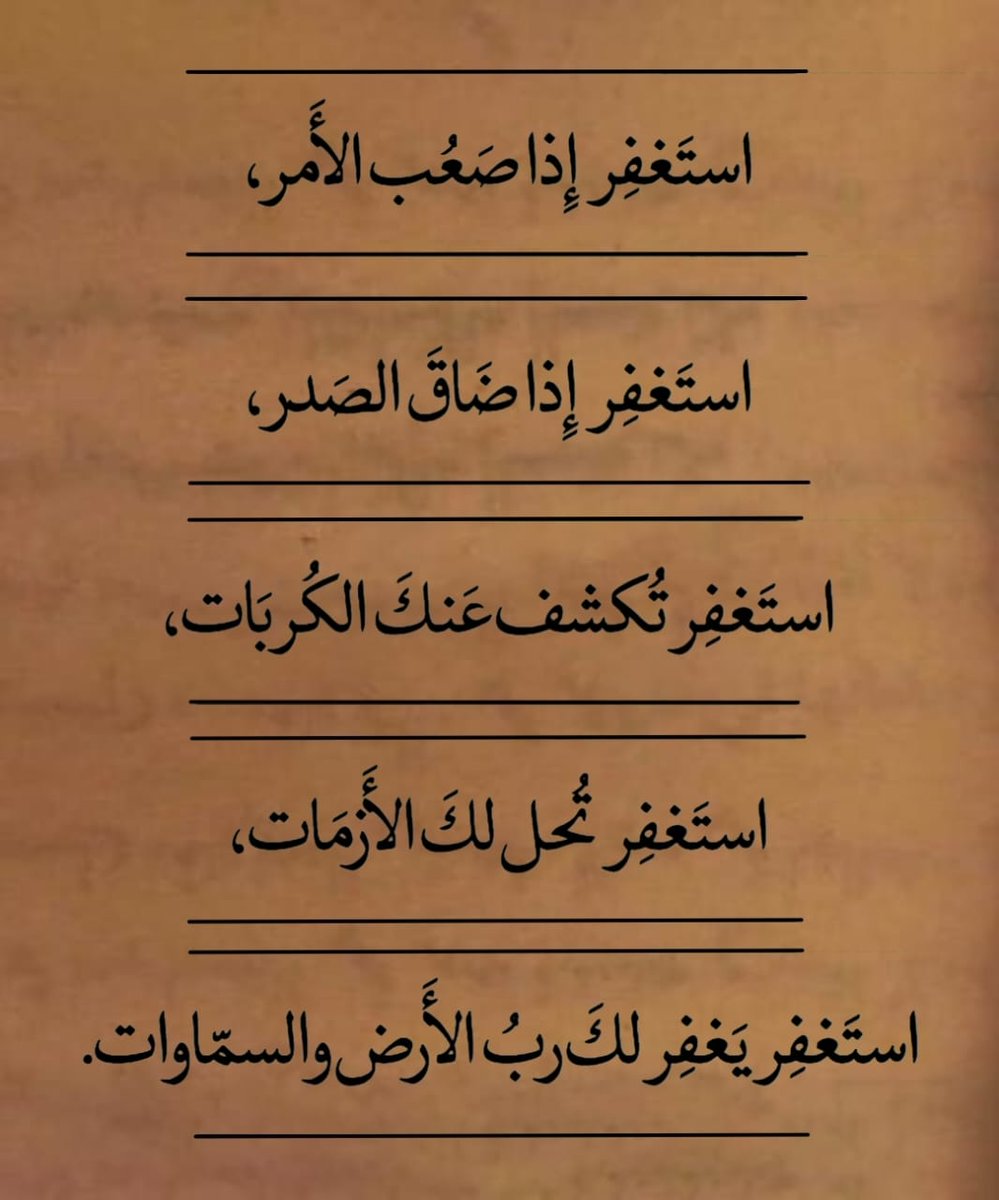 استَغفِر إِذا صَعُب الأَمر،
استَغفِر إِذا ضَاقَ الصَدر،
استَغفِر تُكشف عَنكَ الكُربَات،
استَغفِر تُحل لكَ الأَزمَات،
استَغفِر يَغفِر لكَ ربُ الأَرض والسمّاوات.